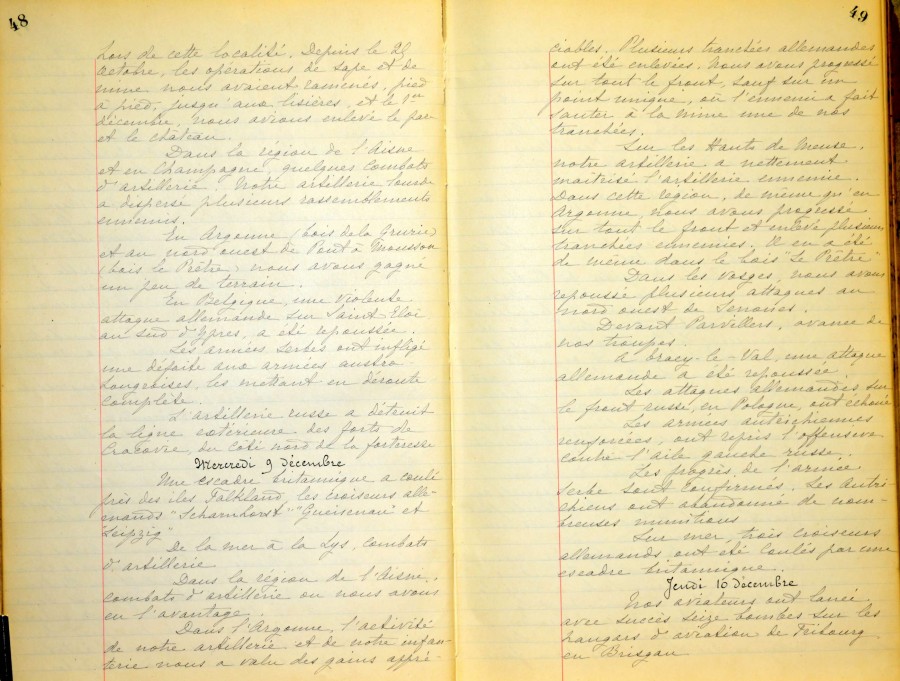 48
hors de cette localité. Depuis le
Octobre, les opérations de sape et de
mine nous avaient ramenés, pied
à pied, jusqu'aux lisières, et le 1er
décembre, nous avions enlevé le parc
et le château.
Dans la région de l'Aisne
et en Champagne, quelques combats
d'artillerie. Notre artillerie lourde
a dispersé plusieurs rassemblements
ennemis.
En Argonne (bois de la Grurie)
et au nord ouest de Pont à Mousson
(bois le Prêtre) nous avons gagné
un peu de terrain.
En Belgique, une violente
attaque allemande sur Saint-Eloi
au sud d'Ypres, a été repoussée.
Les armées serbes ont infligé
une défaite aux armées austro
hongroises, les mettant en déroute
complète.
L'artillerie russe a détruit
la ligne extérieure des forts de
Cracovie, du côté nord de la forteresse
Mercredi 9 décembre
Une escadre britannique a coulé
près des îles Falkland, les croiseurs alle-
mands "Scharnhorst" "Gneisenau" et
"Leipzig"
De la mer à la Lys, combats
d'artillerie
Dans la région de l'Aisne,
combats d'artillerie où nous avons
eu l'avantage.
Dans l'Argonne, l'activité
de notre artillerie et de notre infan-
terie nous a valu des gains appré-
49
ciables. Plusieurs tranchées allemandes
ont été enlevées. Nous avons progressé
sur tout le front, sauf sur un
point unique, où l'ennemi a fait
sauter à la mine une de nos
tranchées.
Sur les Hauts de Meuse,
notre artillerie a nettement
maîtrisé l'artillerie ennemie.
Dans cette région, de même qu'en
Argonne, nous avons progressé
sur tout le front et enlevé plusieurs
tranchées ennemies. Il en a été
de même dans le bois "Le Prêtre"
Dans les Vosges, nous avons
repoussé plusieurs attaques au
nord ouest de Senones.
Devant Parvillers, avance de
nos troupes.
A Bracy-le-Val, une attaque
allemande a été repoussée.
Les attaques allemandes sur
le front russe, en Pologne, ont échoué
Les armées autrichiennes
renforcées, ont repris l'offensive
contre l'aile gauche russe.
Les progrès de l'armée
serbe sont confirmés. Les Autri
chiens ont abandonné de nom-
breuses munitions
Sur mer, trois croiseurs
allemands ont été coulés par une
escadre britannique.
Jeudi 10 décembre
Nos aviateurs ont lancé
avec succès seize bombes sur les
hangars d'aviation de Fribourg
en Brisgau